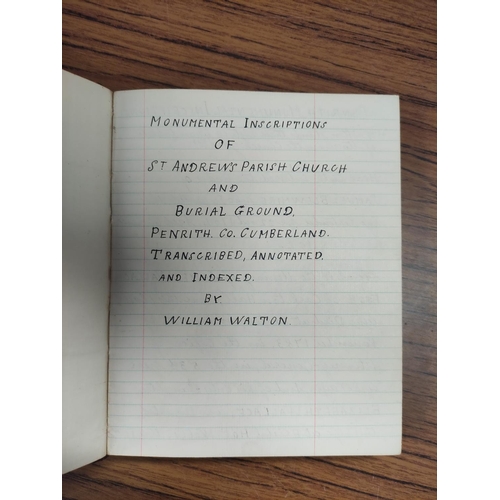 MONUMENTAL INSCRIPTIONS
OF
ST ANDREWS PARISH CHURCH
AND
BURIAL GROUND.
PENRITH. CO. CUMBERLAND.
TRANSCRIBED, ANNOTATED,
AND INDEXED.
BY
WILLIAM WALTON.